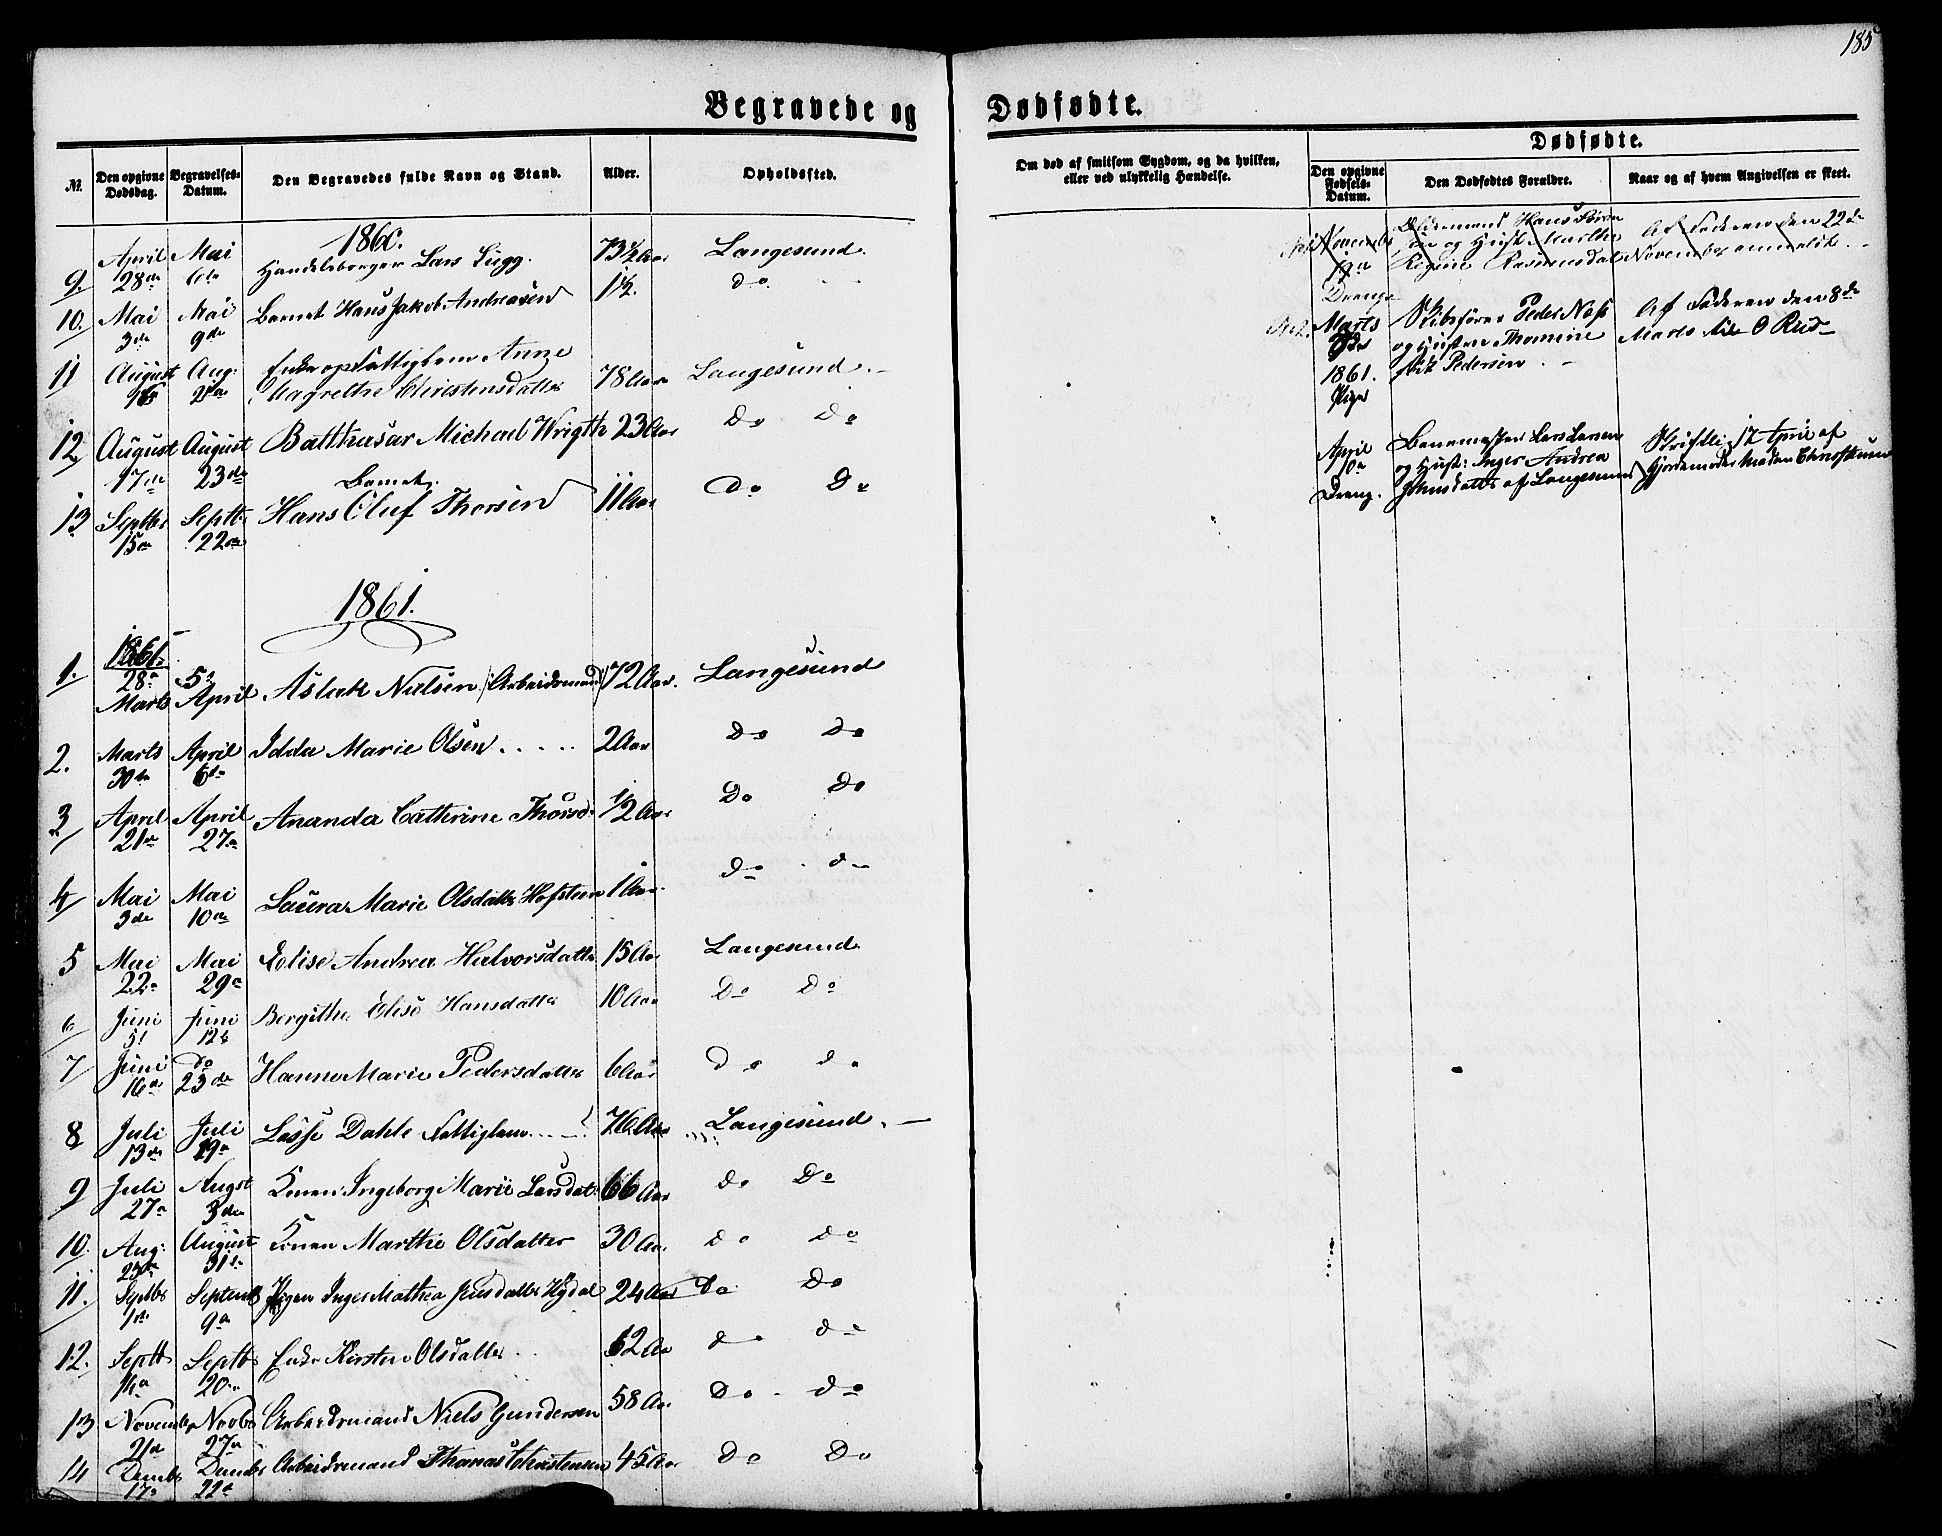 185
Begravede og Dødfødte.
№ Den opgivne Dødsdag. Begravelses-Datum. Den Begravedes fulde Navn og Stand. Alder. Opholdssted.
Om død af smitsom Sygdom, og da hvilken, eller ved ulykkelig Hændelse.
Dødfødte.
Den opgivne Fødsels-Datum. Den Dødfødtes Forældre. Naar og af hvem Angivelsen er skeet.
1860.
9. April 28de Mai 6te Handelsborger Lars Sigg. 73½ Aar Langesund.
10. Mai 3de Mai 9de Barnet Hans Jakob Andreasen 1½. do
11 August Aug: Enke og Fattiglem Anne Magrethe Christensdatter 78 Aar Langesund. -
12 August 17de August 23de Balthasar Michael Wrigth 23 Aar Do Do
13 Septbr 15de Septbr 22de Barnet Hans Oluf Thorsen 11 Aar Do Do
1861.
1861.
1. 28de Marts 5te April Aslak Nielsen (Arbeidsmand) 72 Aar. Langesund
2. Marts 30te April 6te Idda Marie Olsen 2 Aar Do Do
3 April 21de April 27de Ananda Cathrine Thorsd. 1/2 Aar Do Do
4 Mai 3de Mai 10de Laura Marie Olsdatter Hofsteen 1 Aar. do do
5 Mai 22de Mai 29de Elise Andrea Halvorsdatter 15 Aar Langesund
6 Juni 5t Juni 12te Bergithe Elise Hansdatter 10 Aar Do Do
7 Juni 16de Do 23de Hanne Marie Pedersdatter 6 Aar Do do
8 Juli 13de Juli 19de Lasse Dahle Fattiglem 76 Aar Langesund. -
9 Juli 27de Augst 3die Konen Ingeborg Marie Larsdat: 66 Aar do Do
10. Aug: August 31te Konen Marthe Olsdatter 30 Aar do Do
11. Septbr 1ste Septemb 9de Pigen Inger Mathea Jensdatter 24 Aar Do Do
12. Septb Septbr 20de Enke Kirsten Olsdatter 62 Aar do do
13 November 21de Novbr 27de Arbeidsmand Niels Gundersen 58 Aar Do do
14 Decmbr 17de Decmbr 22de Arbeidsmand Thomas Christensen 45 Aar Do Do
November Drenge Oldermand Hans Søren og Hust: Marthe Regine Rasmusdat Af Faderen den 22de November anmeldt. -
Marts 1861. Pige Skibsfører Peder Næss og Hustru Thomine født Pedersen. - Af Faderen den 8de Marts
April 10de Dreng. Lars Larsen og Hust: Inger Andrea Johnsdatter af Langesund Skriftli: 12 April af Gjordemoder Madam Christensen